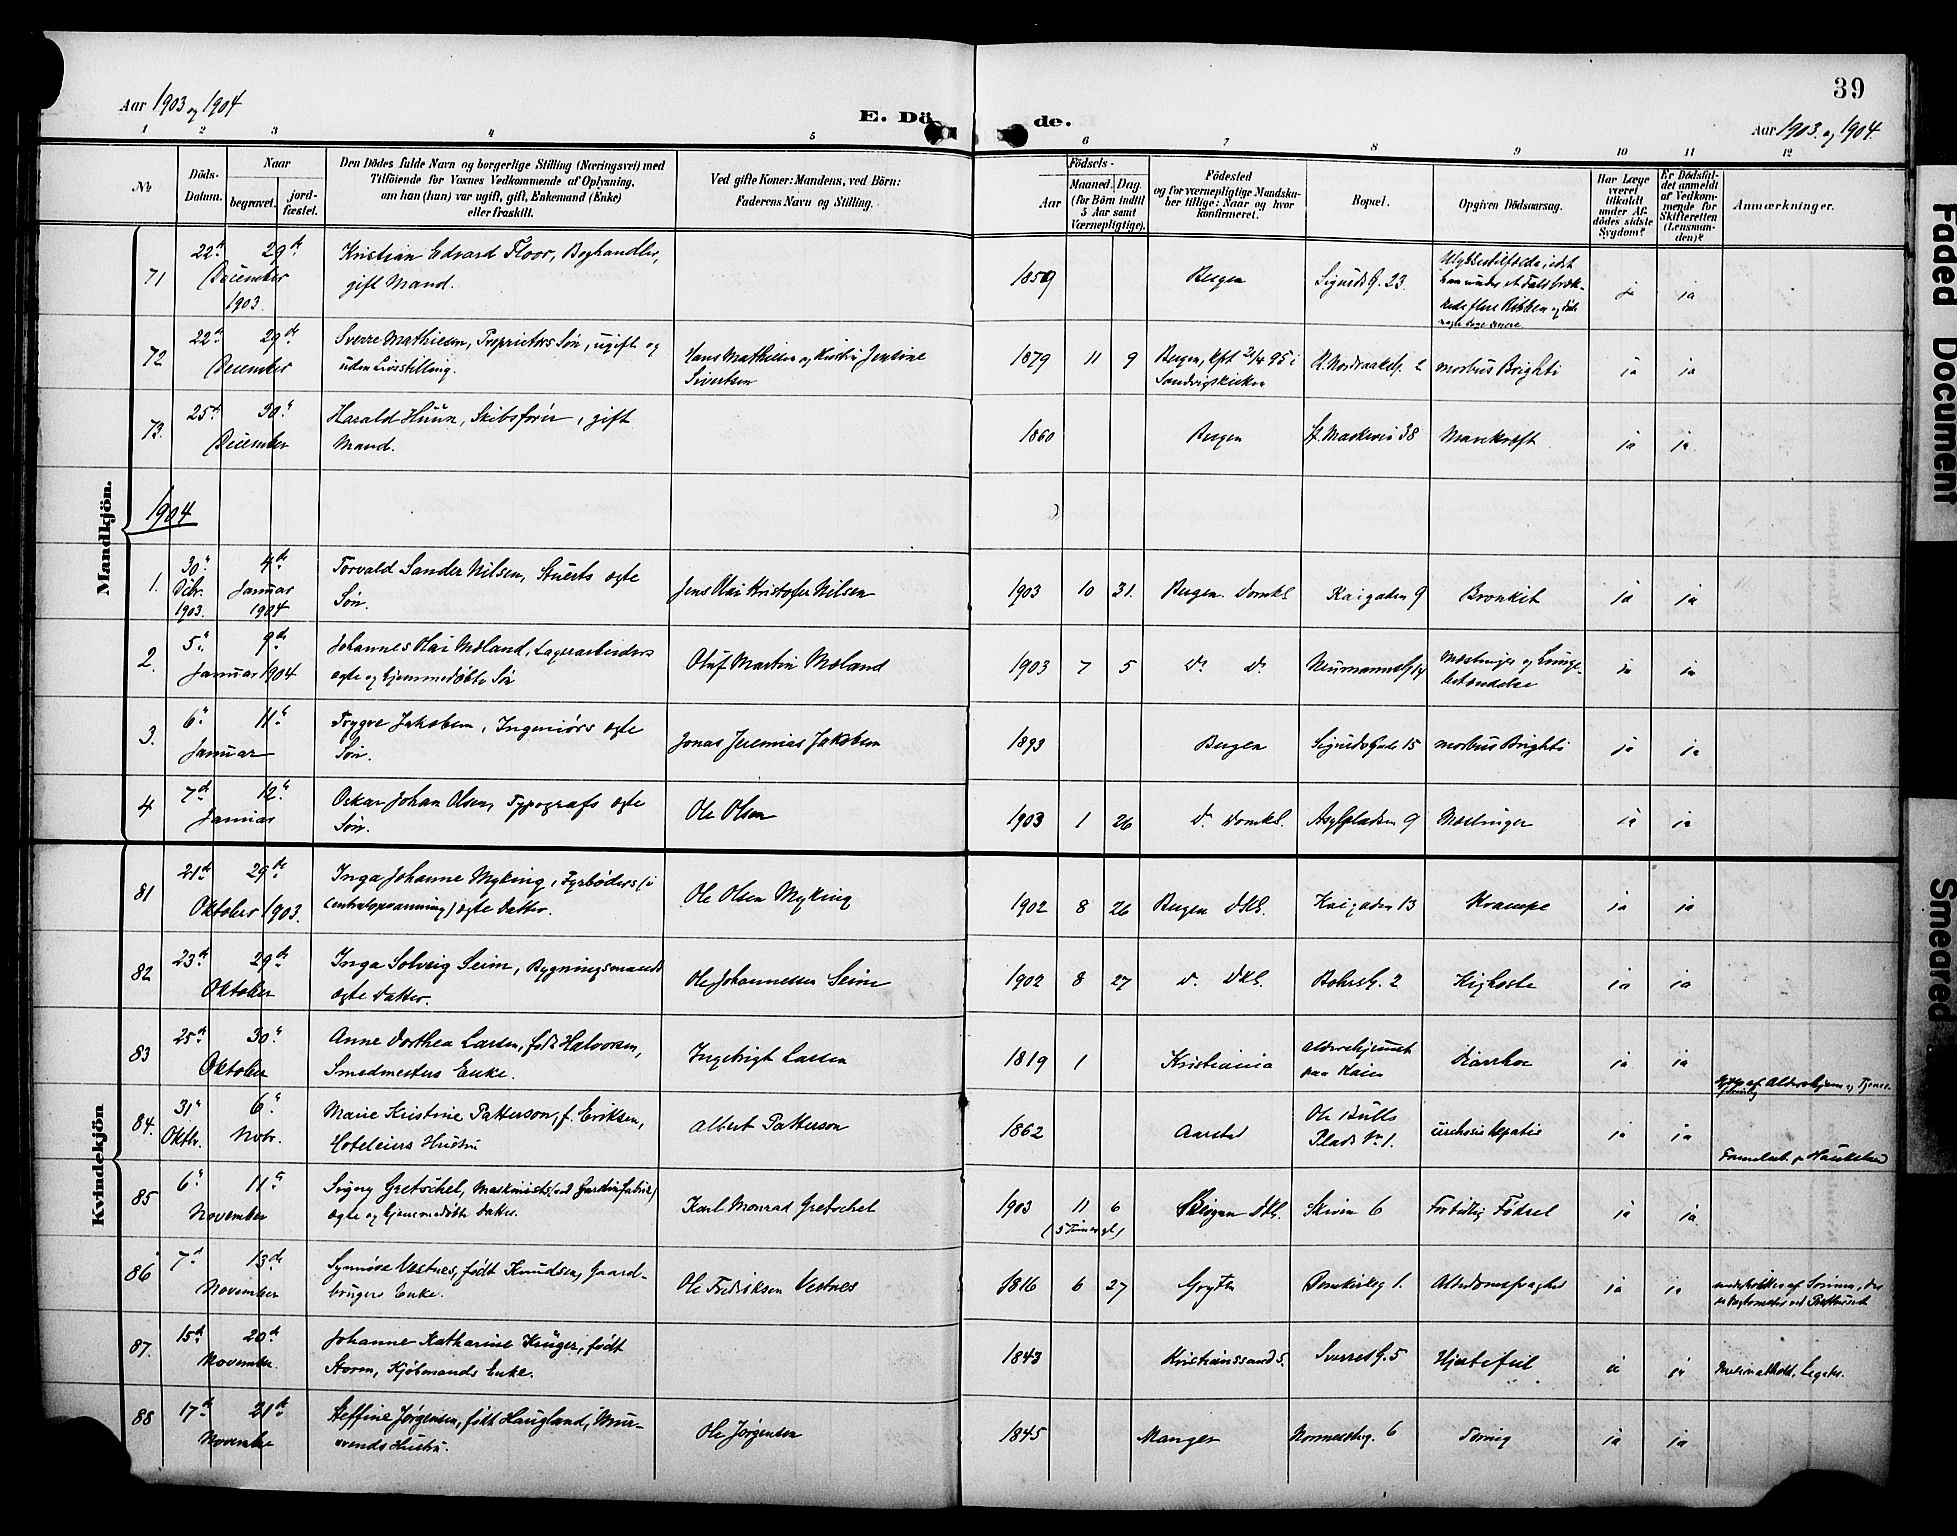 39
Aar 1903 og 1904
E. Dö de.
Aar 1903 og 1904.
1 2 3 4 5 6 7 8 9 10 11 12
No
Döds-
Datum.
Naar
begravet.
jord-
fæstet.
Den Dödes fulde Navn og borgerlige Stilling (Næringsvei) med
Tilföiende for Voxnes Vedkommende af Oplysning,
om han (hun) var ugift, gift, Enkemand (Enke)
eller fraskilt.
Ved gifte Koner: Mandens, ved Börn:
Faderens Navn og Stilling.
Födsels-
Aar
Maaned.
Dag.
(for Börn indtil
5 Aar samt
Værnepligtige).
Födested
og for værnepligtige Mandska-
ber tillige: Naar og hvor
konfirmeret.
Bopæl.
Opgiven Dödsaarsag.
Har Læge
været
tilkaldt
under Af-
dödes sidste
Sygdom?
Er Dödsfal-
det anmeldt
af Vedkom-
mende for
Skifteretten
(Lensman-
den)?
Anmærkninger.
Mandkjön.
71 22de 29de December 1903. Kristian Edvard Floor, Boghandler,
gift Mand.
1859 Bergen Sigurdsg. 23. Ulykkestilfælde, idet
han under et Fald bræk-
kede flere Ribben og døde
nogle dage senere ja ja
72 22de 29de December Sverre Mathiesen, Proprietærs Søn, ugift og
uden Livsstilling.
Hans Mathiesen og Hustru Jensine
Sivertsen
1879 11 9 Bergen, kft 21/4 95 i
Sandvigskirken
R. Nordraaksg. 2 morbus Brighti ja ja
73. 25de 30te December Harald Huun, Skibsfører, gift
Mand.
1860 Bergen St. Markevei 38 Mavekræft ja ja
1904
1. 30te Decbr. 1903. 4de Januar 1904 Torvald Sander Nilsen, Stuerts ægte
Søn.
Jens Olai Kristofer Nilsen
1903 10 31. Bergen. Domkl. Kaigaden 9 Bronkit ja ja
2. 5te 9de Januar 1904 Johannes Olai Mæland, Lagerarbeiders
ægte og hjemmedøbte Søn
Oluf Martin Mæland
1903 7 5 do do Neumannsg. 14 Mæslinger og Lunge-
betændelse ja ja
3. 6te 11te Januar Trygve Jakobsen, Ingeniørs ægte
Søn.
Jonas Jeremias Jakobsen
1893 Bergen Sigurdsgade 15 morbus Brighti ja ja
4 7de 12te Januar Oskar Johan Olsen, Typografs ægte
Søn.
Ole Olsen
1903 1 26 do Domkl. Asylpladsen 9 Mæslinger ja ja
Kvindekjön
81 21de 29de Oktober 1903. Inga Johanne Myking, Fyrbøders (i
Centralopvarmning) ægte Datter.
Ole Olsen Myking
1902 8 26 Bergen Dkl. Kaigaden 13 Krampe ja ja
82 23de 29de Oktober Inga Solveig Seim, Bygningsmands
ægte Datter.
Ole Johannessen Seim
1902 8 27 do Dkl. Bohrsg. 2 Kighoste ja ja
83 25de 30te Oktober Anne Dorthea Larsen, født Halvorsen,
Smedmesters Enke.
Ingebrigt Larsen
1819 1 Kristiania Aldershjemmet
paa Kaien
Diarrhoe ja ja
84. 31te Oktbr. 6te Nobr. Marie Kristine Patterson, f. Eriksen,
Hoteleiers Hustru
Albert Patterson
1862 Aarstad Ole Bulls
Plads No 1.
cirrhosis hepatis ja ja
85 6te 11te November Signy Gretschel, Maskinists (ved Gardinfabrik)
ægte og hjemmedøbte Datter.
Karl Monrad Gretschel
1903 11 6
(5 Timer gl.)
Bergen Dkl. Skiven 6 For tidlig Fødsel ja ja
86 7de 13de November Synnøve Vestnes, født Knudsen, Gaard-
brugers Enke.
Ole Fredriksen Vestnes
1816 6 27 Gryten Domkirkeg. 1. Alderdomssvaghed ja ja
87. 15de 20de November Johanne Katharine Krüger, født
Storm, Kjøbmands Enke.
1843 Kristianssund S. Sverresg. 5 Hjertefeil ja ja
88 17de 21de November Steffine Jørgensen, født Haugland, Mur-
svends Hustru.
Ole Jørgensen
1845 Manger Normandsg. 6 Tæring ja ja
Faded Document
Smeared